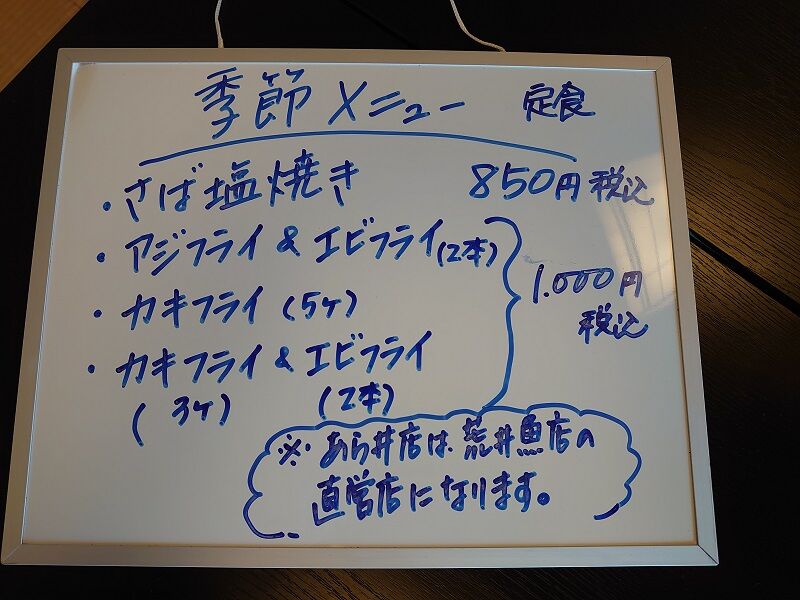 季節メニュー 定食
・さば塩焼き 850円税込
・アジフライ&エビフライ(2本)
・カキフライ(5ケ) 1.000円
税込
・カキフライ&エビフライ
(3ケ) (2本)
※あら井店は荒井魚店の
直営店になります。